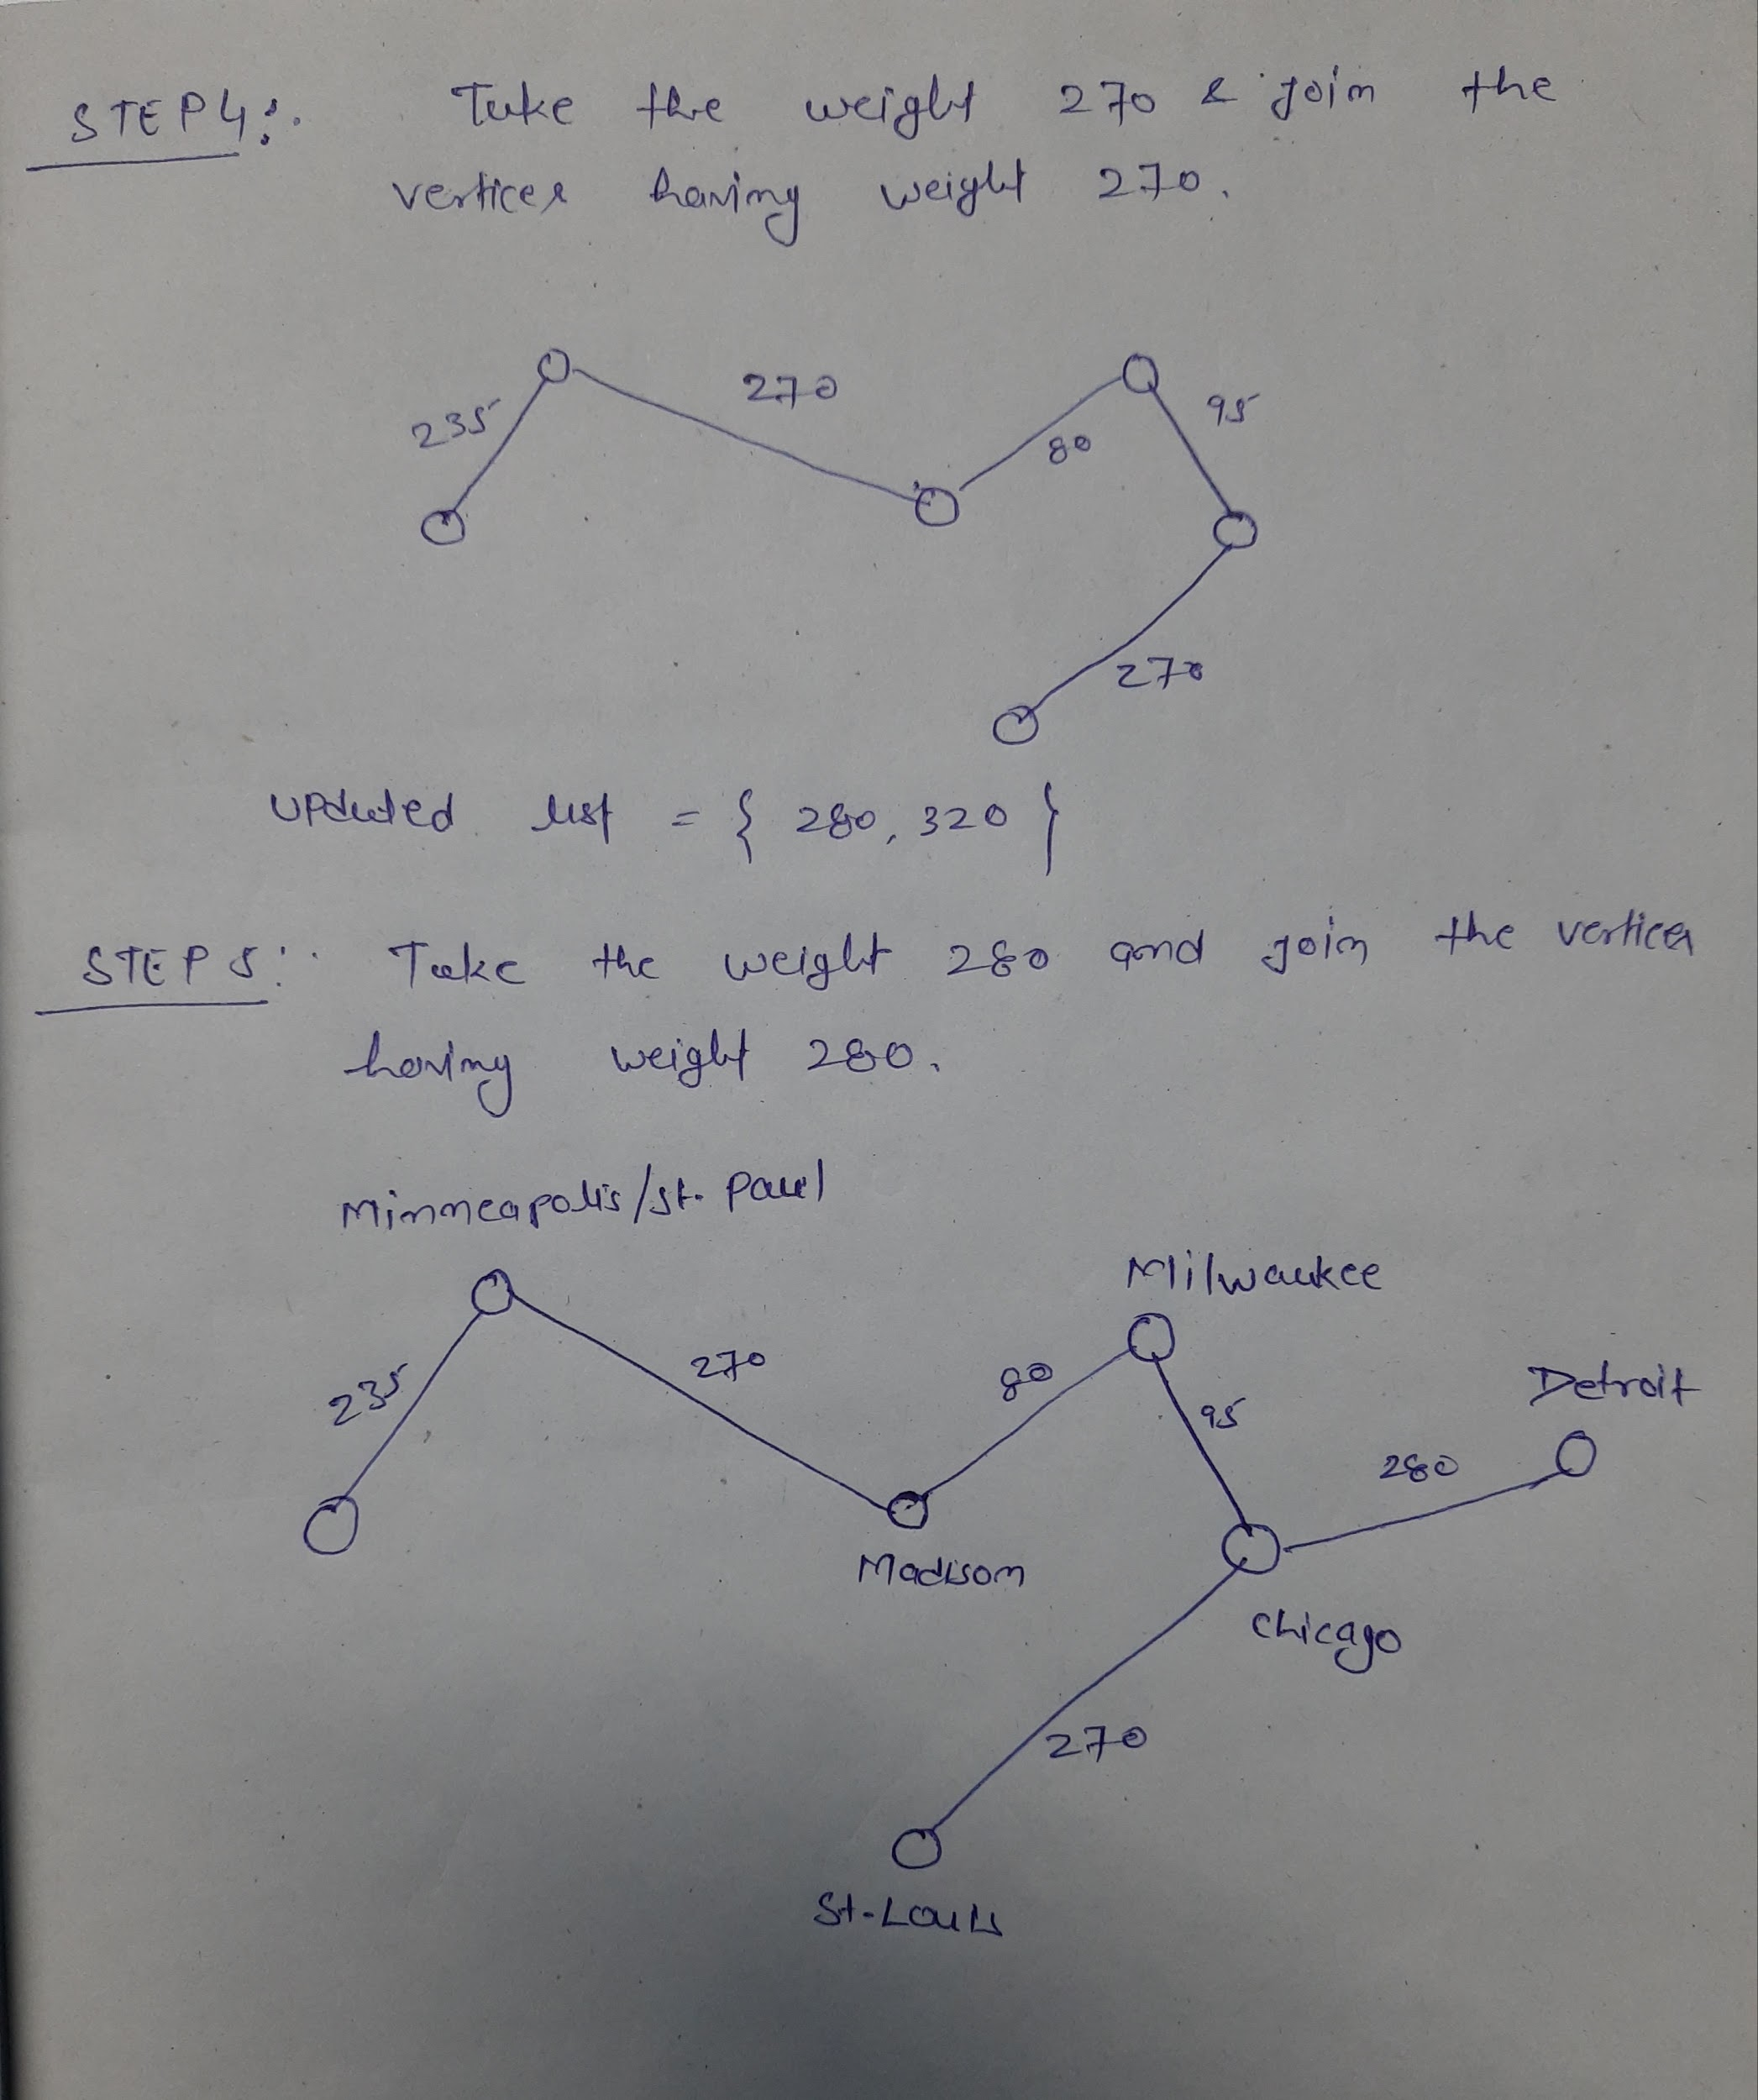 STEP 4:. Take the weight 270 & join the
vertices having weight 270.
235
270
80
95
270
Updated list = { 280, 320 }
STEP 5:. Take the weight 280 and join the vertices
having weight 280.
Minneapolis/St. Paul
Milwaukee
Detroit
235
270
80
95
280
Madison
Chicago
270
St-Louis